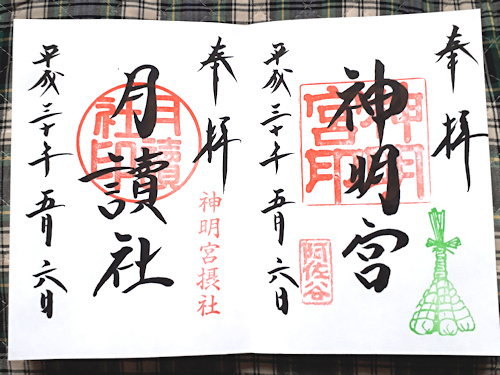 奉拝
神明宮
神明宮印
阿佐谷
平成三十年五月六日
奉拝
月讀社
月讀社印
神明宮摂社
平成三十年五月六日